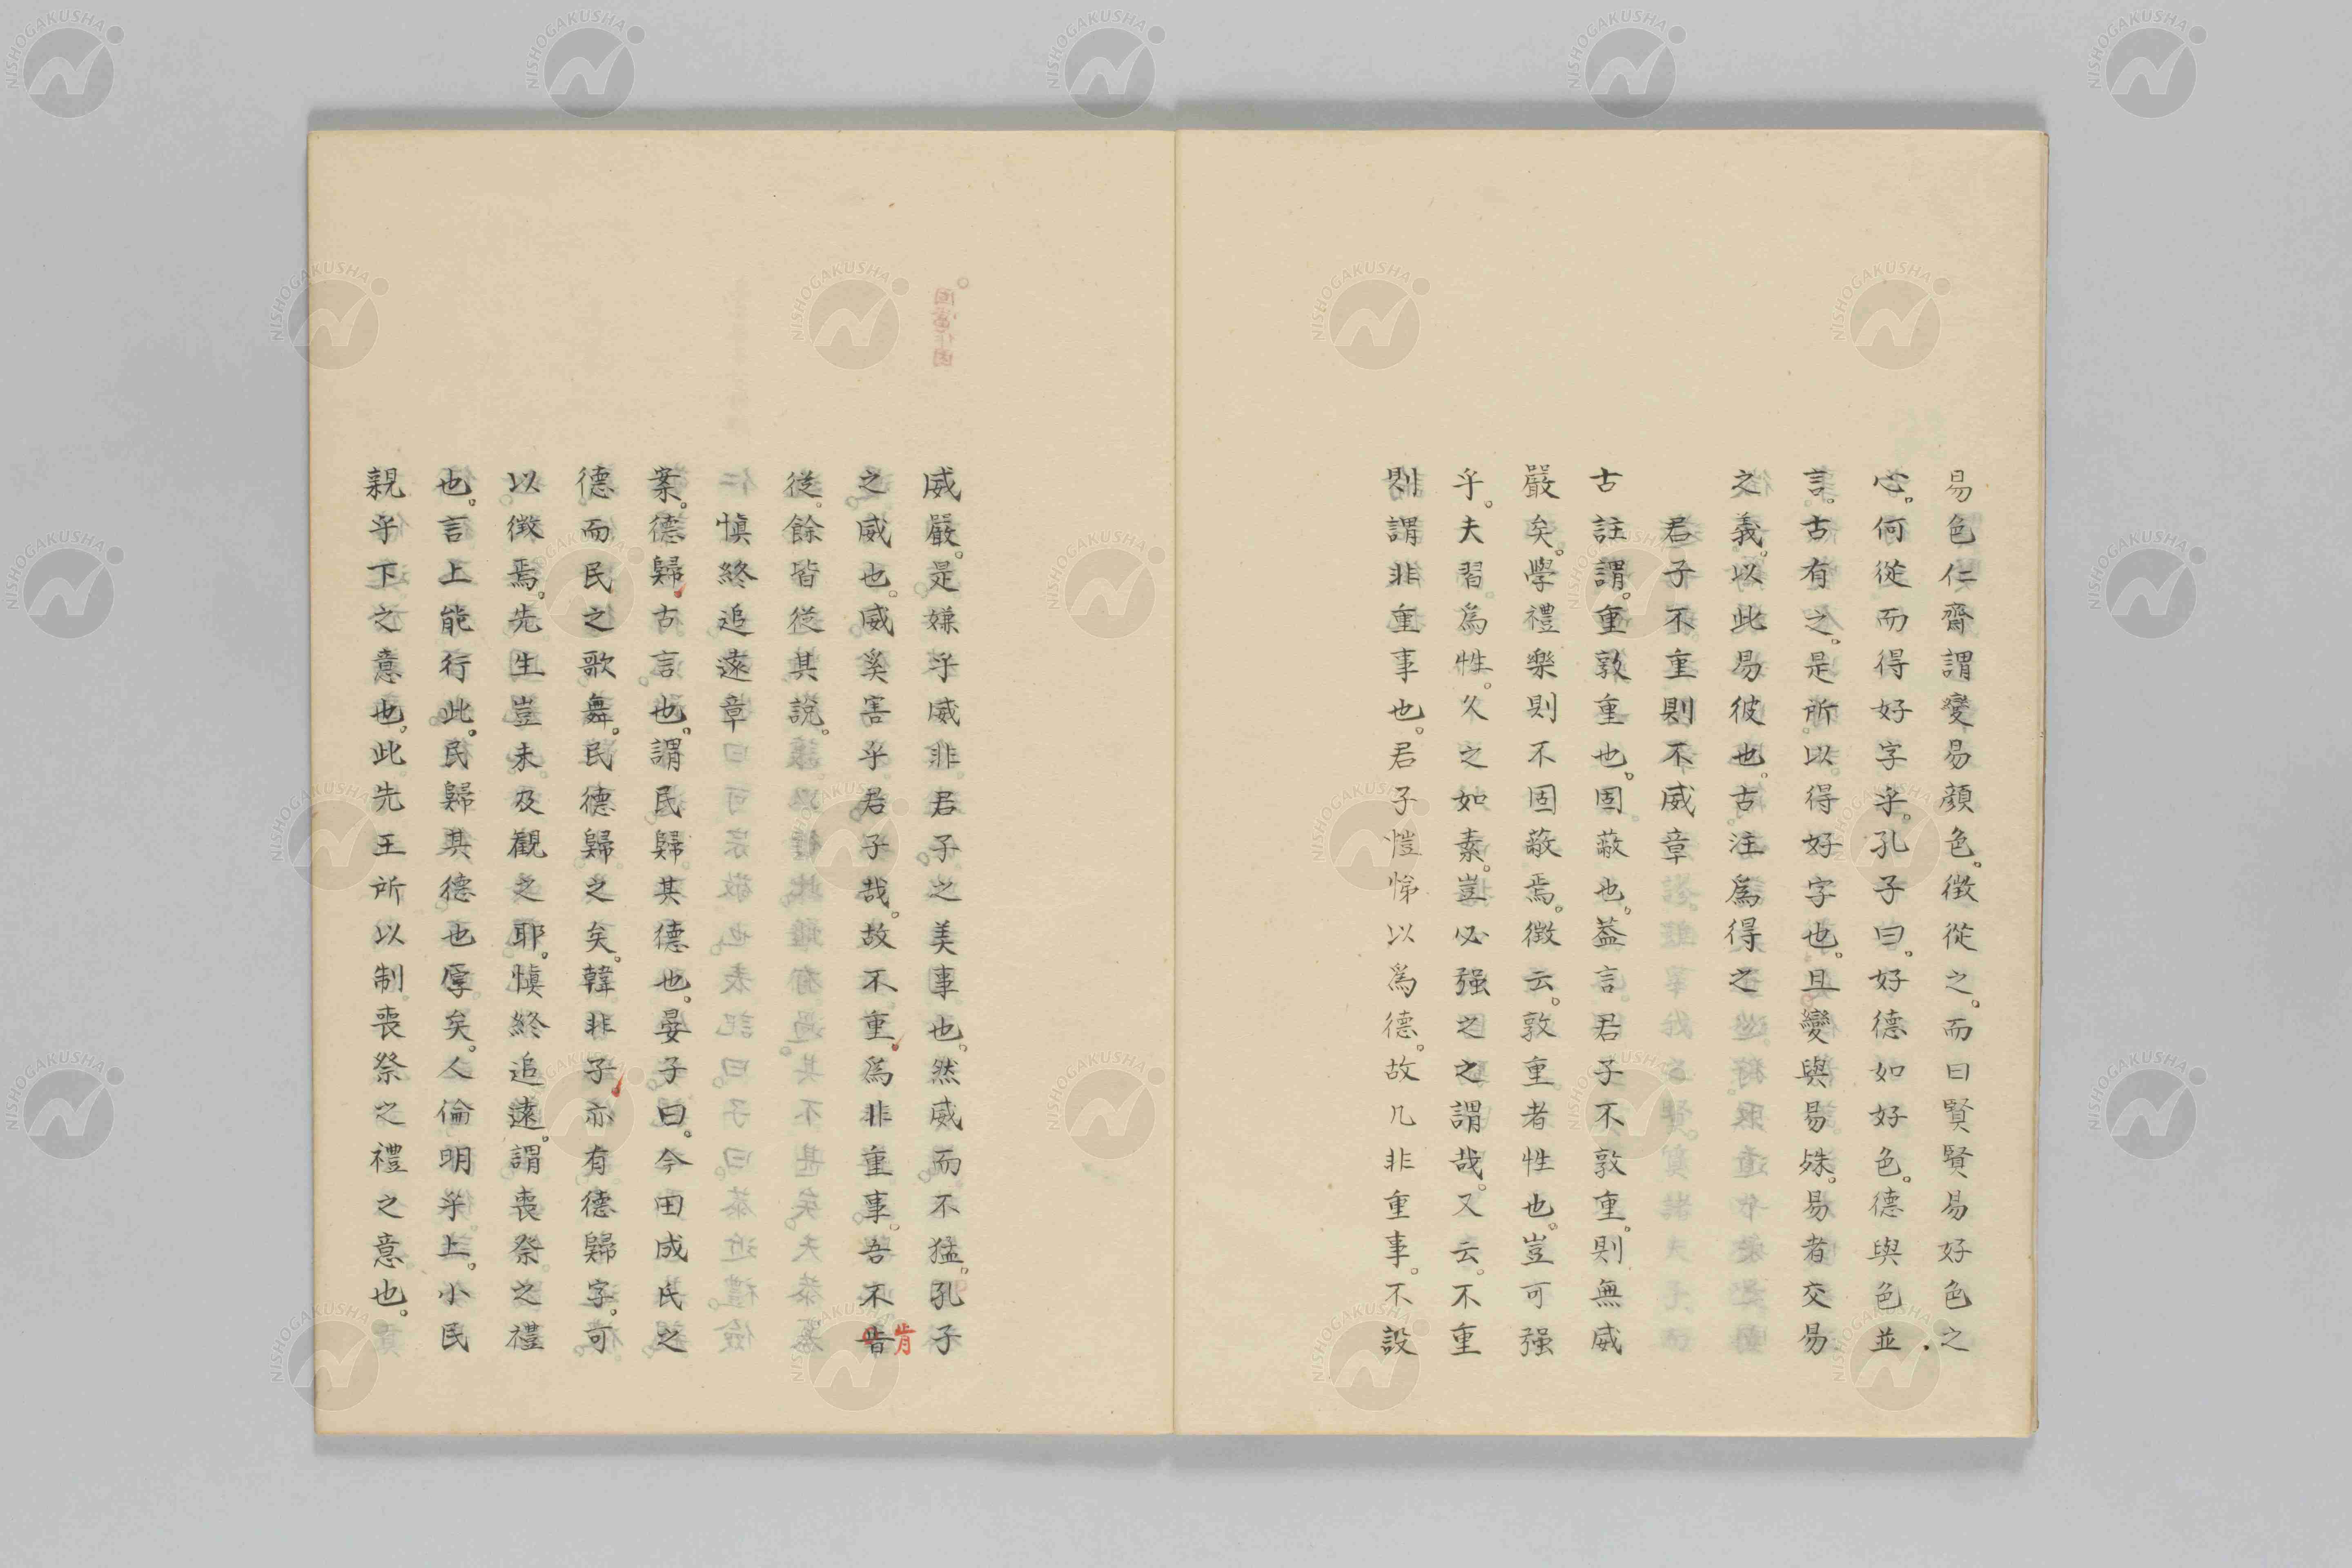 易色仁齋謂變易顔色。徴從之。而曰賢賢易好色之
心。何從而得好字乎。孔子曰。好德如好色。德與色並
言。古有之。是所以得好字也。且變與易殊。易者交易
之義。以此易彼也。古注爲得之
君子不重則不威章
古註謂。重敦重也。固蔽也。蓋言君子不敦重。則無威
嚴矣。學禮樂則不固蔽焉。徴云。敦重者性也。豈可强
乎。夫習爲性。久之如素。豈必强之之謂哉。又云。不重
則謂非重事也。君子愷悌以爲德。故凡非重事。不設
威嚴。是嫌乎威非君子之美事也。然威而不猛。孔子
之威也。威奚害乎君子哉。故不重爲非重事。吾不肯
肯
從。餘皆從其說。
慎終追遠章
案。德歸。古言也。謂民歸其德也。晏子曰。今田成氏之
德而民之歌舞。民德歸之矣。韓非子亦有德歸字。可
以徴焉。先生豈未及觀之耶。慎終追遠。謂喪祭之禮
也。言上能行此。民歸其德也厚矣。人倫明乎上。小民
親乎下之意也。此先王所以制喪祭之禮之意也。
NISHOGAKUSHA